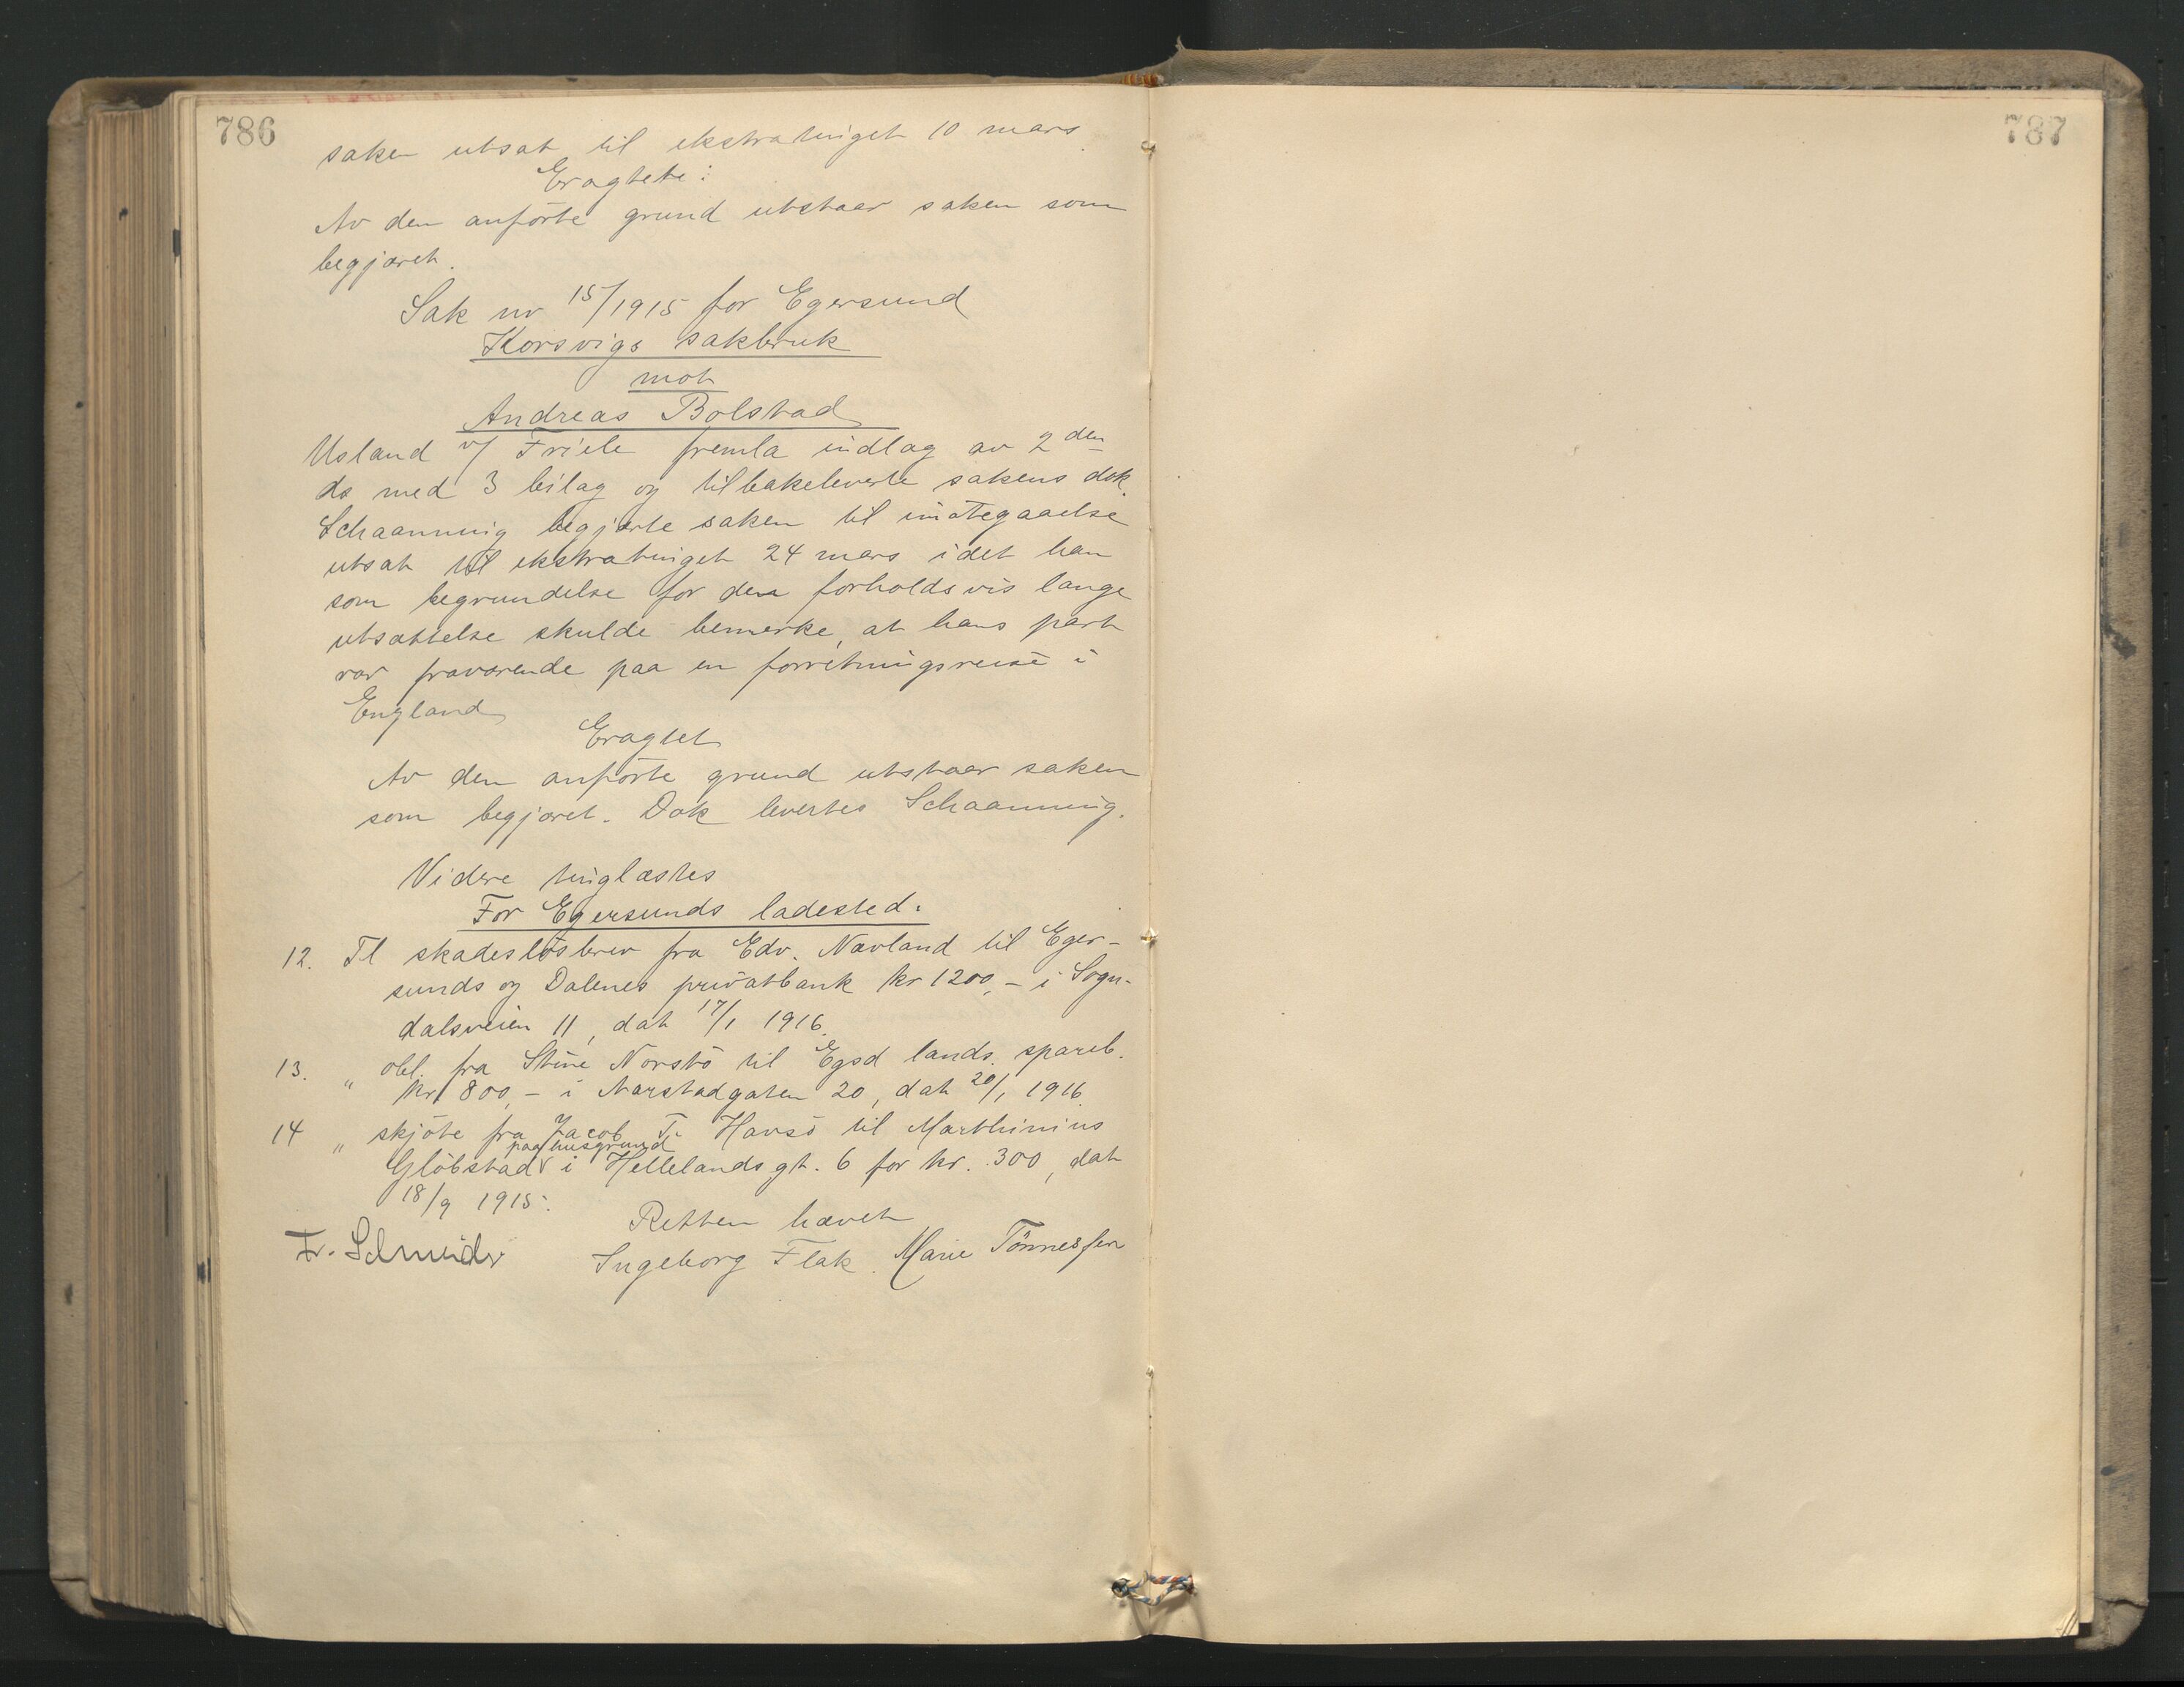 786
saken utsat til ekstratinget 10 mars.
Eragtete:
Av den anførte grund utstaar saken som
begjæret.
Sak nr 15/1915 for Egersund
Korsvigs sakbruk
mot
Andreas Bolstad
Usland v/ Friele fremla indlæg av 2den
ds med 3 bilag og tilbakeleverte sakens dok.
Schaanning begjærte saken til imøtegaaelse
utsat til ekstratinget 24 mars idet han
som begrundelse for den forholdsvis lange
utsættelse skulde bemerke, at hans part
var fraværende paa en forretningsreise i
England
Eragtet
Av den anførte grund utstaar saken
som begjæret. Dok levertes Schaanning.
Videre tinglæstes
For Egersunds ladested.
12. Tl skadesløsbrev fra Edv. Navland til Eger-
sunds og Dalenes privatbank kr 1200,- i Sogn-
dalsveien 11, dat 17/1 1916.
13. " obl. fra Stine Norstø til Egsd lands. spareb.
kr 800,- i Aarstadgaten 20, dat 20/1 1916.
14 " skjøte fra Jacob T. Havsø til Marthinius
paa husgrund
Gløbstad i Hellelandsgt. 6 for kr. 300, dat
18/9 1915.
Retten hævet
Fr. Schneider Ingeborg Flak. Marie Tönnessen
787